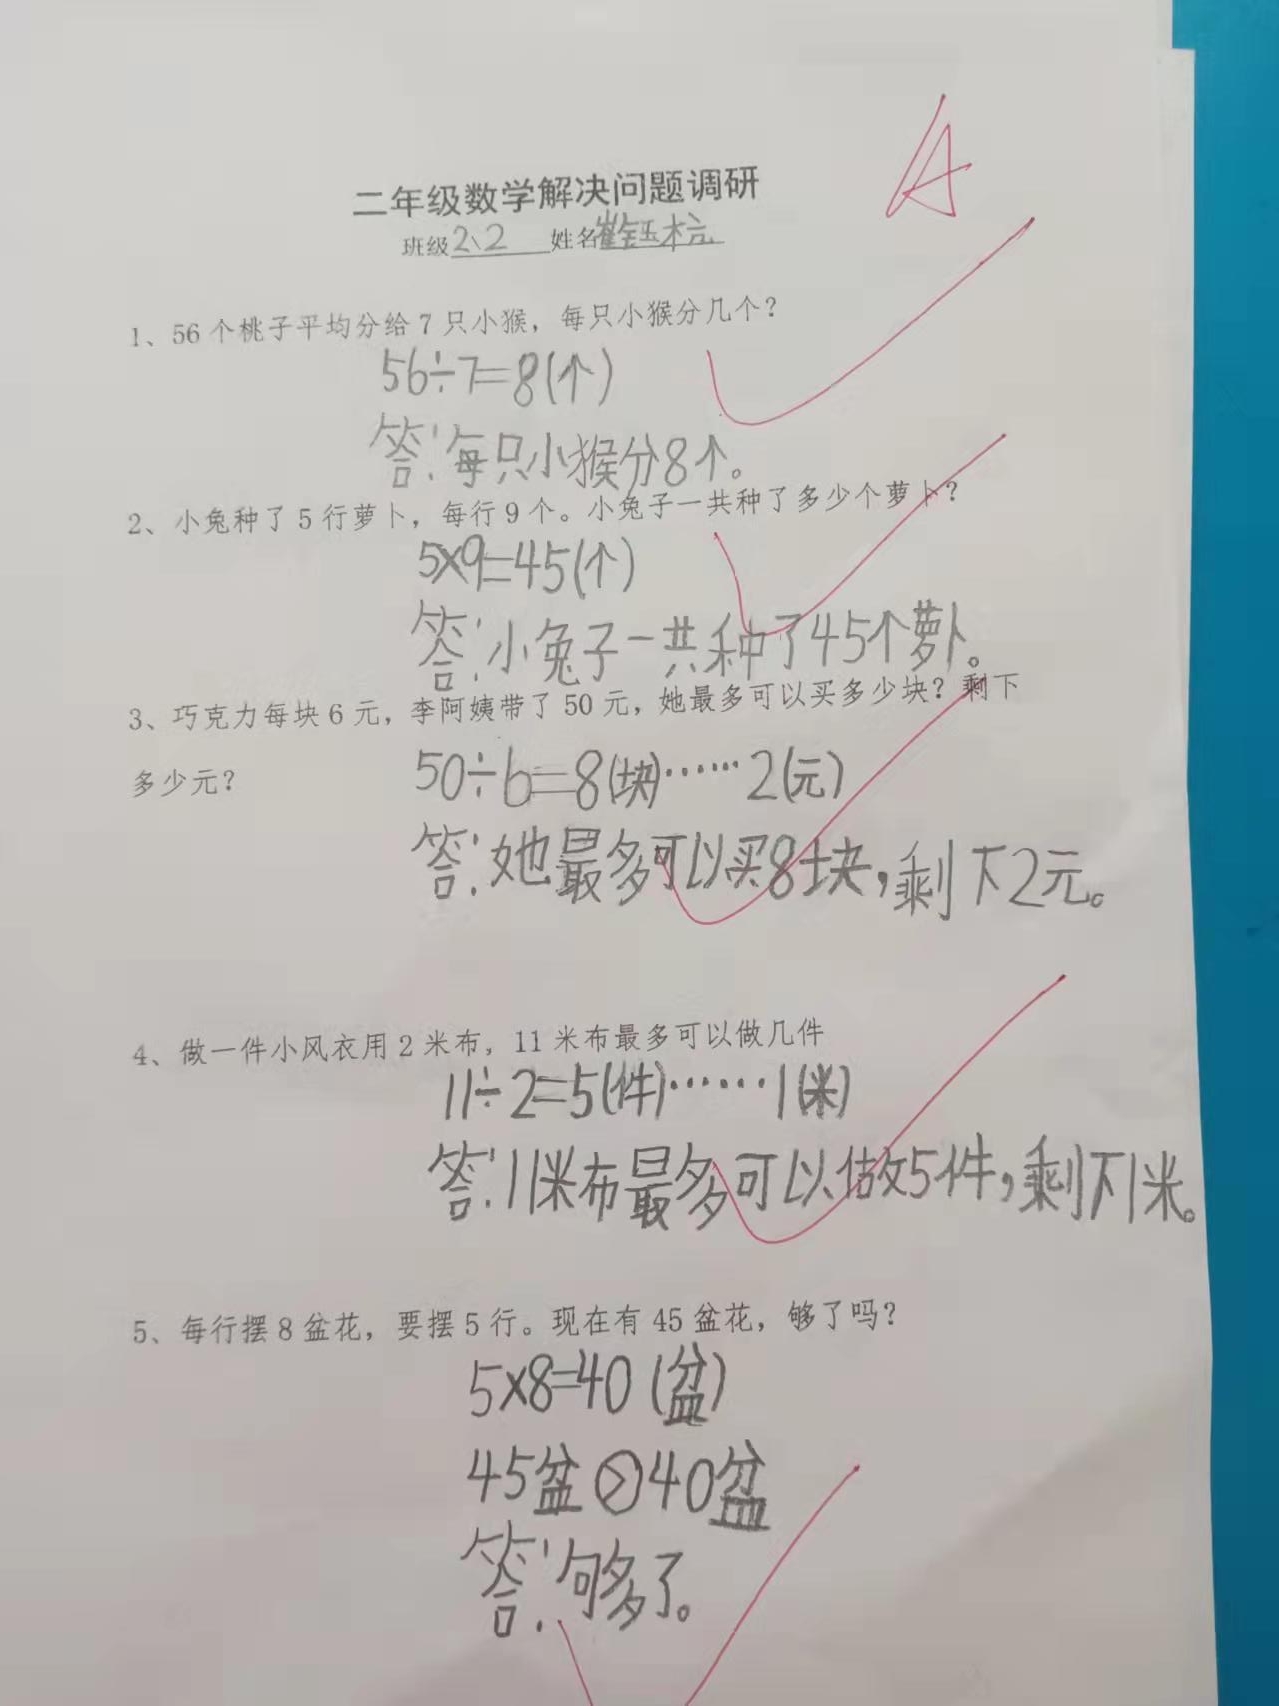 A
二年级数学解决问题调研
班级2、2 姓名崔钰杭
1、56个桃子平均分给7只小猴，每只小猴分几个？
56÷7=8(个)
答：每只小猴分8个。
2、小兔种了5行萝卜，每行9个。小兔子一共种了多少个萝卜？
5×9=45(个)
答：小兔子一共种了45个萝卜。
3、巧克力每块6元，李阿姨带了50元，她最多可以买多少块？剩下
多少元？
50÷6=8(块)……2(元)
答：她最多可以买8块，剩下2元。
4、做一件小风衣用2米布，11米布最多可以做几件
11÷2=5(件)……1(米)
答：11米布最多可以做5件，剩下1米。
5、每行摆8盆花，要摆5行。现在有45盆花，够了吗？
5×8=40(盆)
45盆>40盆
答：够了。